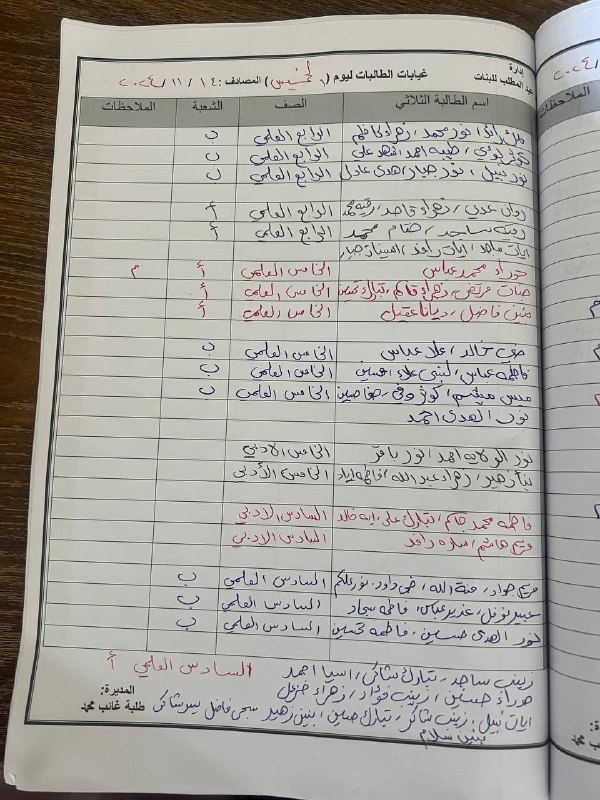 إدارة
عبد المطلب للبنات
غيابات الطالبات ليوم (الخميس) المصادف: ١٤ / ١١ / ٢٠٢٤
اسم الطالبة الثلاثي الصف الشعبة الملاحظات
نور محمد، زهراء كاظم الرابع العلمي ب
طيبه احمد، شهد علي الرابع العلمي ب
نور نبيل، نور جبار، هدى عادل الرابع العلمي ب
روان عدي، زهراء قاصد، رقيه محمد الرابع العلمي أ
رقيه ساجد، ختام محمد الرابع العلمي أ
ايات ماجد، ايات رائد، امينة جبار
حوراء محمد عباس الخامس العلمي أ م
مرتضى، زهراء قاسم، تبارك تحسين الخامس العلمي أ
فاضل، ديانا عقيل الخامس العلمي أ
خالد، علا عباس الخامس العلمي ب
فاطمه عباس، لبنى علاء حسين الخامس العلمي ب
ميس ميثم، كوثر الخامس العلمي ب
نور الهدى احمد
نور الولايه احمد، نور باقر الخامس الادبي
نبأ زهير، زهراء عبد الله، فاطمه اياد الخامس الأدبي
فاطمه محمد جاسم، تبارك علي، ايه خالد السادس الادبي
مريم هاشم، ساره رائد السادس الادبي
مريم جواد، هبة الله، ضحى داود، نور السادس العلمي ب
عبير نوفل، غدير عباس، فاطمه سجاد السادس العلمي ب
نور الهدى حسين، فاطمه تحسين السادس العلمي ب
زينب ساجد، تبارك شاكر، اسيا احمد السادس العلمي أ
حوراء حسنين، زينب فؤاد، زهراء خزعل
ايات نبيل، زينب شاكر، تبارك حسين، بنين زهير سجى فاضل يسر شاكر
بنين سلام
المديرة:
طلبة غائب محمد